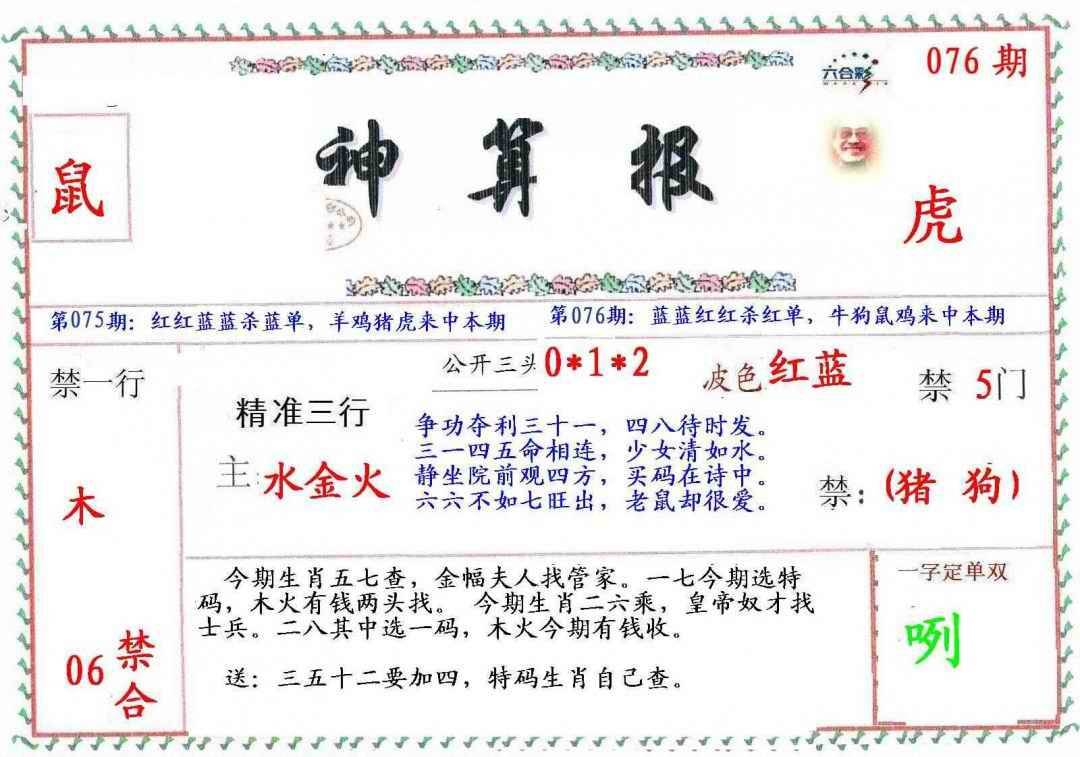 六合彩
076期
神算报
鼠
虎
第075期：红红蓝蓝杀蓝单，羊鸡猪虎来中本期
第076期：蓝蓝红红杀红单，牛狗鼠鸡来中本期
禁一行
公开三头0*1*2
波色红蓝
禁5门
精准三行
主：水金火
争功夺利三十一，四八待时发。
三一四五命相连，少女清如水。
静坐院前观四方，买码在诗中。
六六不如七旺出，老鼠却很爱。
禁：(猪 狗)
木
今期生肖五七查，金幅夫人找管家。一七今期选特
码，木火有钱两头找。 今期生肖二六乘，皇帝奴才找
士兵。二八其中选一码，木火今期有钱收。
送：三五十二要加四，特码生肖自己查。
一字定单双
咧
06禁合